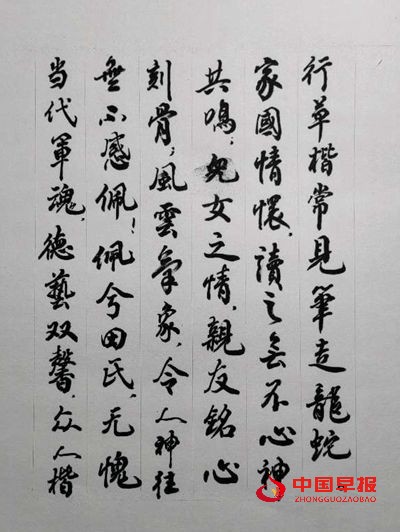 行草楷常見筆走龍蛇
家國情懷，讀之無不心神
共鳴，兒女之情，親友銘心
刻骨，風雲氣象，令人神往
無不感佩！佩兮田氏，无愧
当代軍魂，德藝双馨，众人楷
中国早报
ZHONGGUOZAOBAO